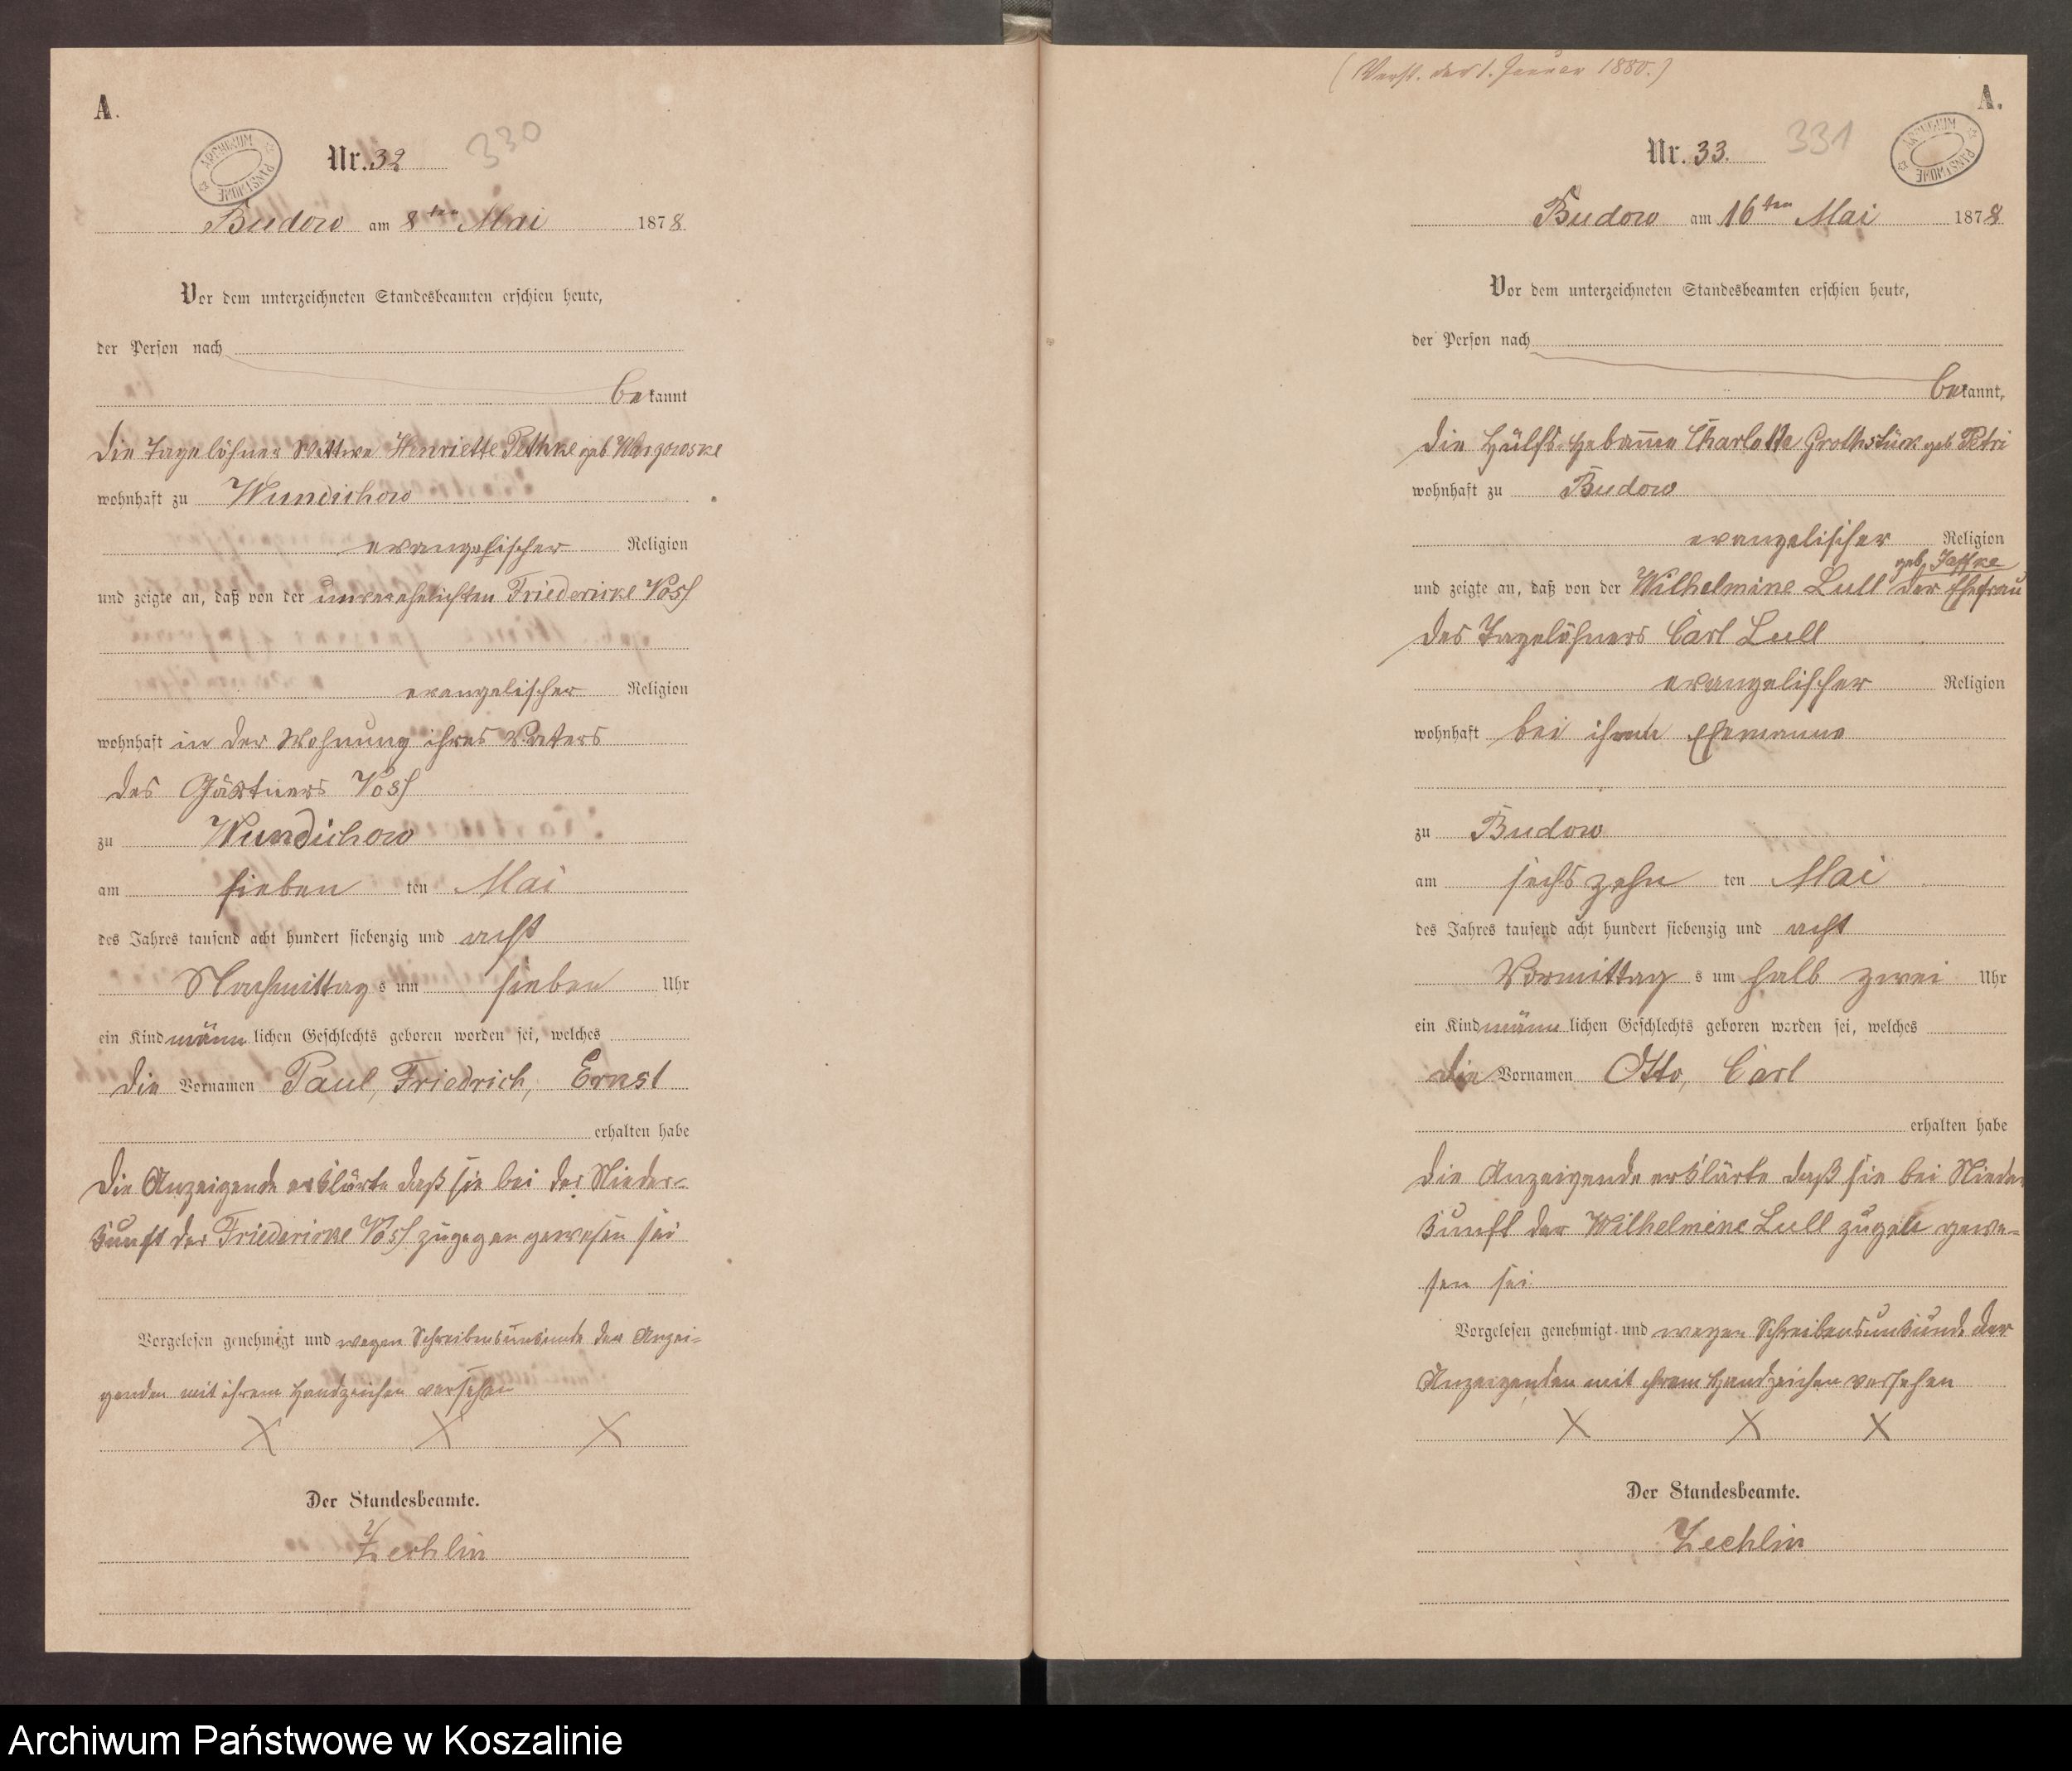 A.
ARCHIWUM PAŃSTWOWE
Nr. 32
330
Budow am 8ten Mai 1878
Vor dem unterzeichneten Standesbeamten erschien heute,
der Person nach
bekannt
die Tagelöhner Wittwe Henriette Pethke geb
wohnhaft zu Wundichow
evangelischer Religion
und zeigte an, daß von der unverehelichten Friedericke Voss
evangelischer Religion
wohnhaft in der Wohnung ihres Vaters
des Gärtners Voss
zu Wundichow
am sieben ten Mai
des Jahres tausend acht hundert siebenzig und acht
Nachmittag s um sieben Uhr
ein Kind männ lichen Geschlechts geboren worden sei, welches
die Vornamen Paul, Friedrich, Ernst
erhalten habe
Die Anzeigende erklärte daß sie bei der Nieder-
kunft der Friedericke Voss zugegen gewesen sei
Vorgelesen genehmigt und wegen Schreibensunkunde der Anzei-
genden mit ihrem Handzeichen versehen
X X X
Der Standesbeamte.
Zechlin
(Verst. der 1. Januar 1880.)
A.
ARCHIWUM PAŃSTWOWE
Nr. 33.
331
Budow am 16ten Mai 1878
Vor dem unterzeichneten Standesbeamten erschien heute,
der Person nach
bekannt,
die Hülfs-Hebamme Charlotte Grothstück geb Petri
wohnhaft zu Budow
evangelischer Religion
geb. Jaffke
und zeigte an, daß von der Wilhelmine Lull der Ehefrau
des Tagelöhners Carl Lull
evangelischer Religion
wohnhaft bei ihrem Ehemanne
zu Budow
am sechszehn ten Mai
des Jahres tausend acht hundert siebenzig und acht
Vormittag s um halb zwei Uhr
ein Kind männ lichen Geschlechts geboren worden sei, welches
die Vornamen Otto, Carl
erhalten habe
Die Anzeigende erklärte daß sie bei Nieder
kunft der Wilhelmine Lull gewe-
sen sei
Vorgelesen genehmigt und wegen Schreibensunkunde der
Anzeigenden mit ihrem Handzeichen versehen
X X X
Der Standesbeamte.
Zechlin
Archiwum Państwowe w Koszalinie